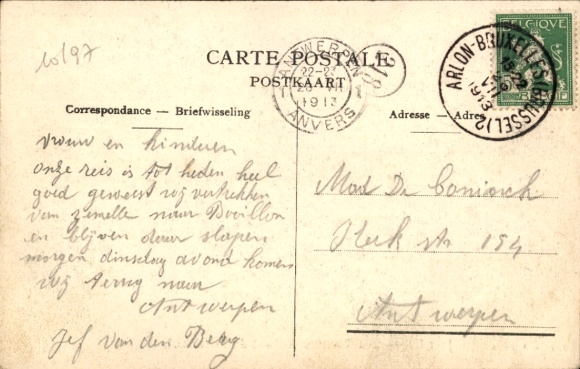 10197
CARTE POSTALE
POSTKAART
Correspondance — Briefwiseling
Adresse — Adres
ANTWERPEN
22-23
1913
ANVERS
1
218
ARLON-BRUXELLES (BRUSSEL) 2
VIII
1913
BELGIQUE
5
BELGIË
vrouw en kinderen
onze reis is tot heden heel
goed geweest wij vertrekken
van Jemelle naar Bouillon
en blijven daar slapen
morgen dinsdag avond komen
wij terug naar
Antwerpen
Jef van den Berg
Mad De Coninck
Kerk str 154
Antwerpen